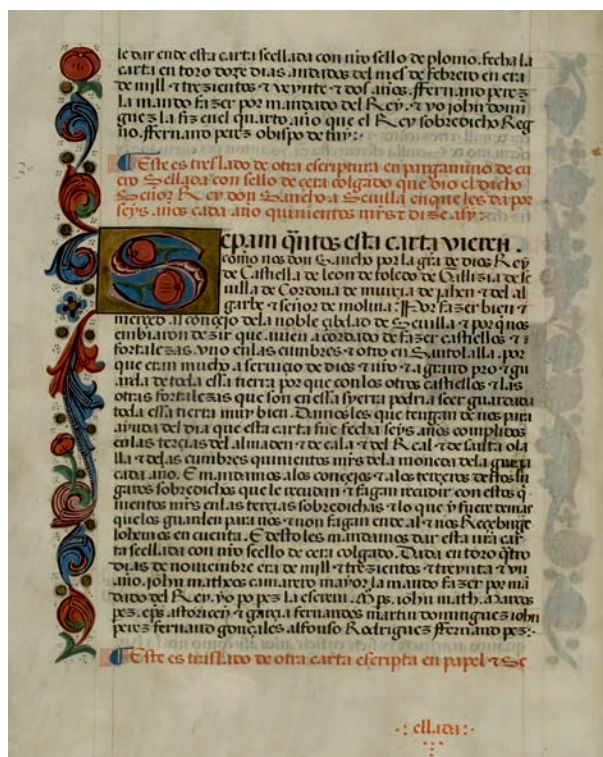 le dar ende esta carta seellada con nro sello de plomo. fecha la
carta en toro doze dias andados del mes de febrero en era
de mill ⁊ trezientos ⁊ veynte ⁊ dos años. ffernand perez
la mando fazer por mandado del Rey. ⁊ yo iohn domi
guez la fiz en el quarto año que el Rey sobredicho Reg
no. ffernand perez obispo de tuy:·
Este es treslado de otra escriptura en pargamino de cu
ero Sellada con sello de çera colgado que dio el dicho
Señor Rey don Sancho a Seuilla en que les da por
seys años cada año quinientos mrs ⁊ dize asy:
Sepam quntos esta carta vieren.
commo nos don Sancho por la gra de dios Rey
de Castiella de leon de toledo de Gallizia de se
uilla de Cordoua de murçia de jahen ⁊ del al
garbe ⁊ señor de molina: Por fazer bien ⁊
merçed al conçejo dela noble çibdad de Seuilla ⁊ por q nos
embiaron dezir que auien acordado de fazer castiellos ⁊
fortalezas. vno en las cumbres ⁊ otro en Santolalla. por
que eran mucho a seruiçio de dios ⁊ nro ⁊ a grand pro ⁊ gu
arda de toda esta tierra por que con los otros castiellos ⁊ las
otras fortalezas que son en esta syerra podria seer guardada
toda esta tierra muy bien. Damos les que tengan de nos para
ayuda del dia que esta carta fue fecha seys años complidos
en las terçias del almaden ⁊ de cala ⁊ del Real ⁊ de santa ola
lla ⁊ delas cumbres quinientos mrs dela moneda dela guerra
cada año. E mandamos alos conçejos ⁊ alos terçeros destos lu
gares sobredichos que le recudan ⁊ fagan recudir con estos q
nientos mrs en las terçias sobredichas ⁊ lo que y fuere demas
que los guarden para nos ⁊ non fagan ende al ⁊ nos Reçebirge
lohemos en cuenta. E desto les mandamos dar esta nra car
ta seellada con nro seello de çera colgado. Dada en toro qtro
dias de nouiembre era de mill ⁊ trezientos ⁊ treynta ⁊ vn
año. iohn matheos camarero mayor la mando fazer por má
dado del Rey. yo po pez la escreui. iohn math. Marcos
pez. eps astoricen ⁊ garçia fernandes martin dominguez iohn
perez fernand gonçales alfonso Rodriguez ffernand pez:·
Este es traslado de otra carta escripta en papel ⁊ Se
·: ellada:·